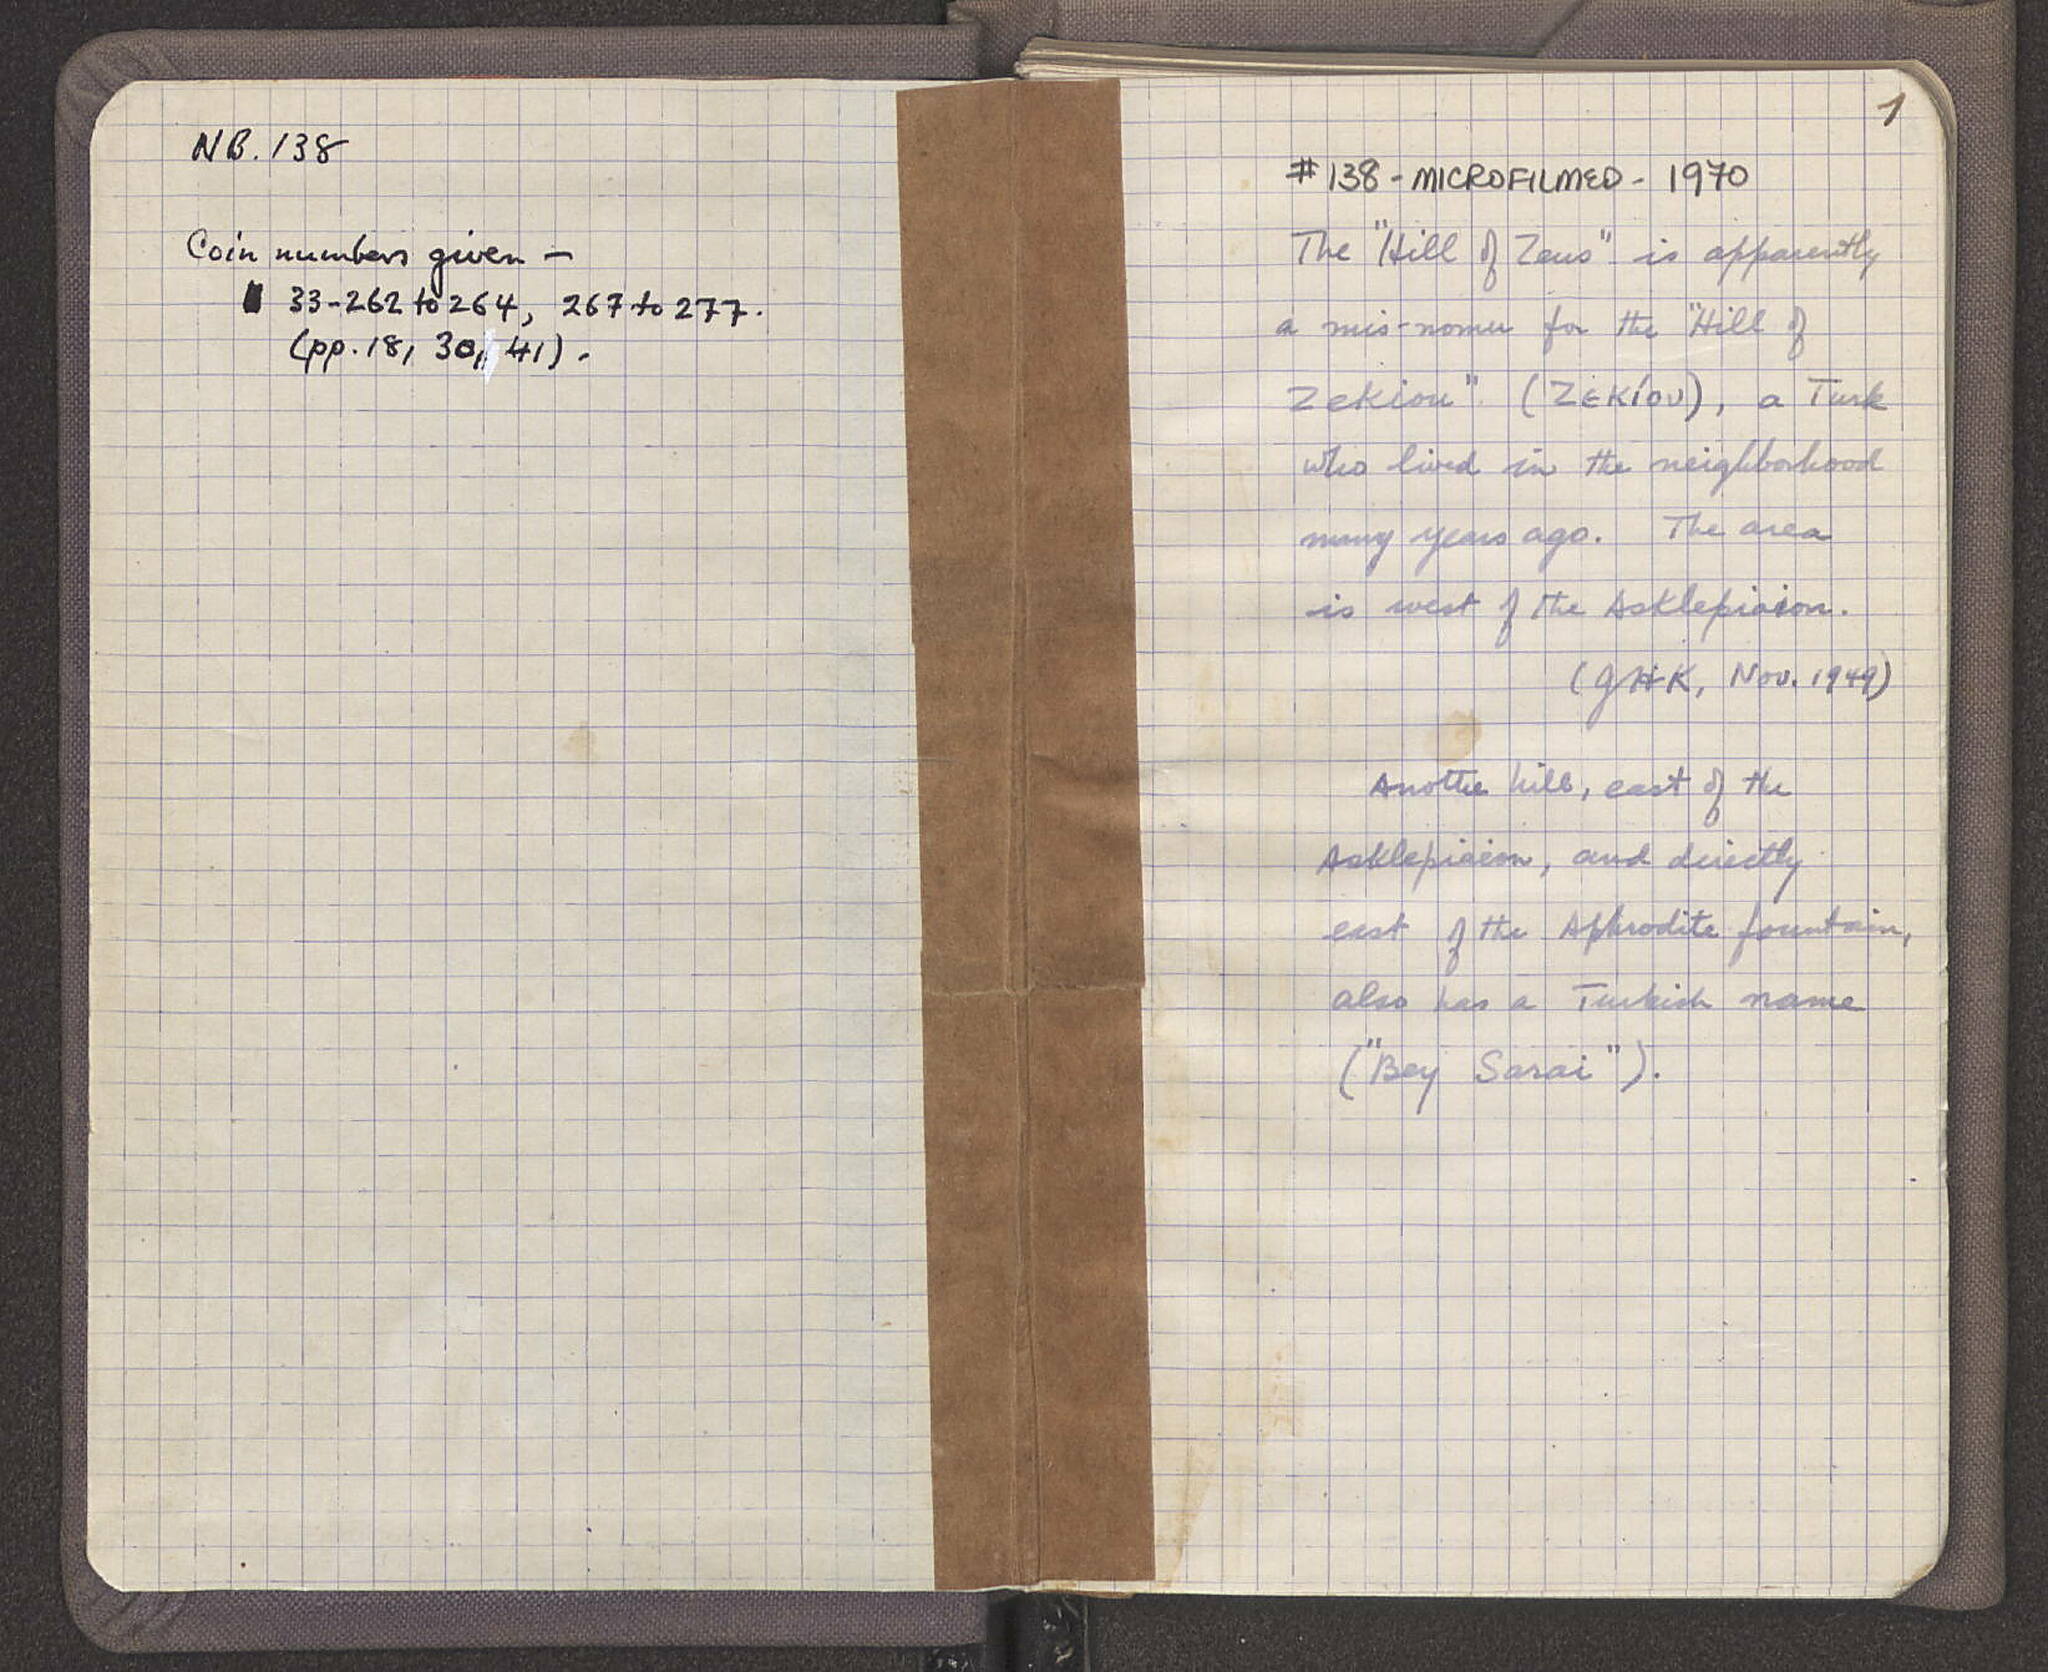 NB. 138
Coin numbers given –
33-262 to 264, 267 to 277.
(pp. 18, 30, 41).
1
# 138 - MICROFILMED - 1970
The "Hill of Zeus" is apparently
a mis-nomer for the "Hill of
Zekiou". (ΖΕΚίου), a Turk
who lived in the neighborhood
many years ago. The area
is west of the Asklepieion.
(GHK, Nov. 1949)
Another hill, east of the
Asklepieion, and directly
east of the Aphrodite fountain,
also has a Turkish name
("Bey Sarai").